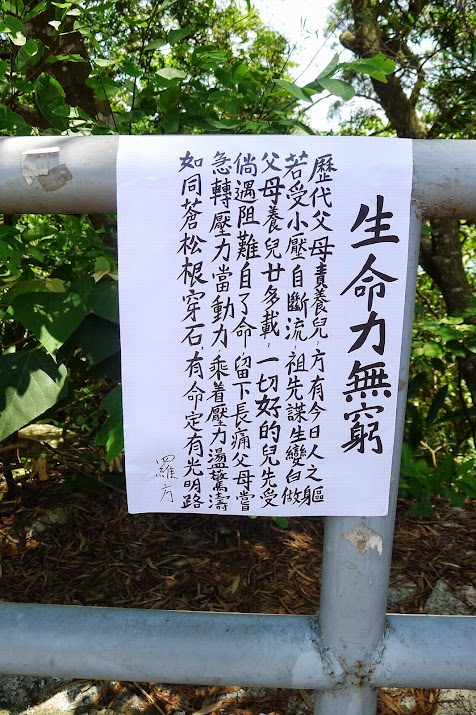 生命力無窮
歷代父母責養兒，方有今日人之軀
若受小壓自斷流，祖先謀生變白做
父母養兒廿多載，一切好的兒先受
倘遇阻難自了命，留下長痛父母嘗
急轉壓力當動力，乘着壓力盪驚濤
如同蒼松根穿石，有命定有光明路
羅方